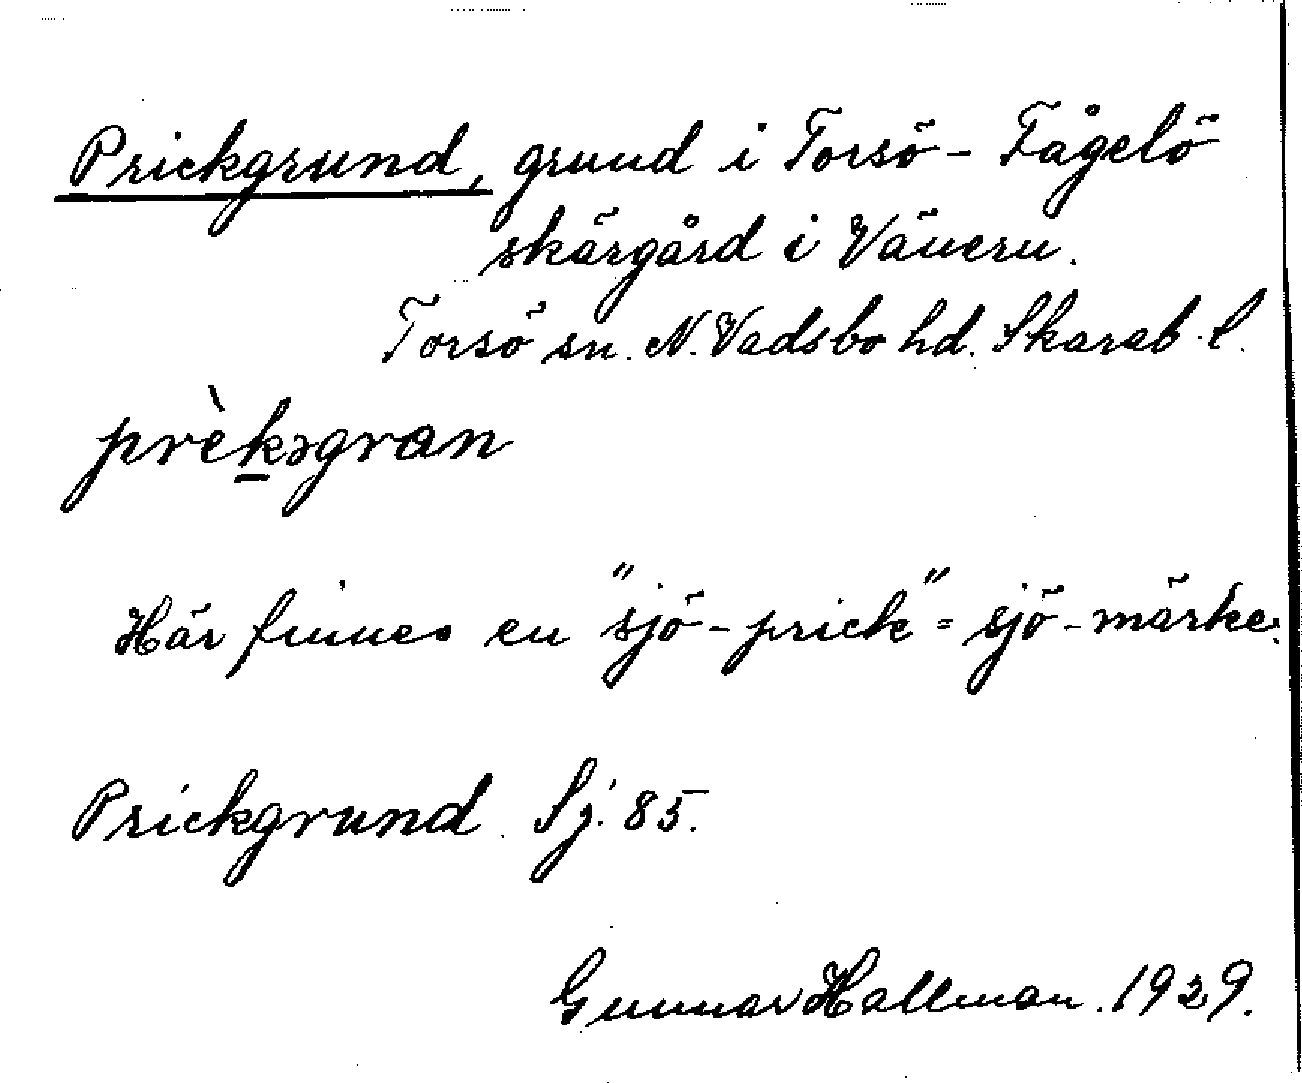 Prickgrund, grund i Torsö - Fågelö
skärgård i Vänern.
Torsö sn. N. Vadsbo hd. Skarab. l.
prèkəgran
Här finnes en "sjö-prick" = sjö-märke.
Prickgrund. Sj. 85.
Gunnar Hallman. 1929.